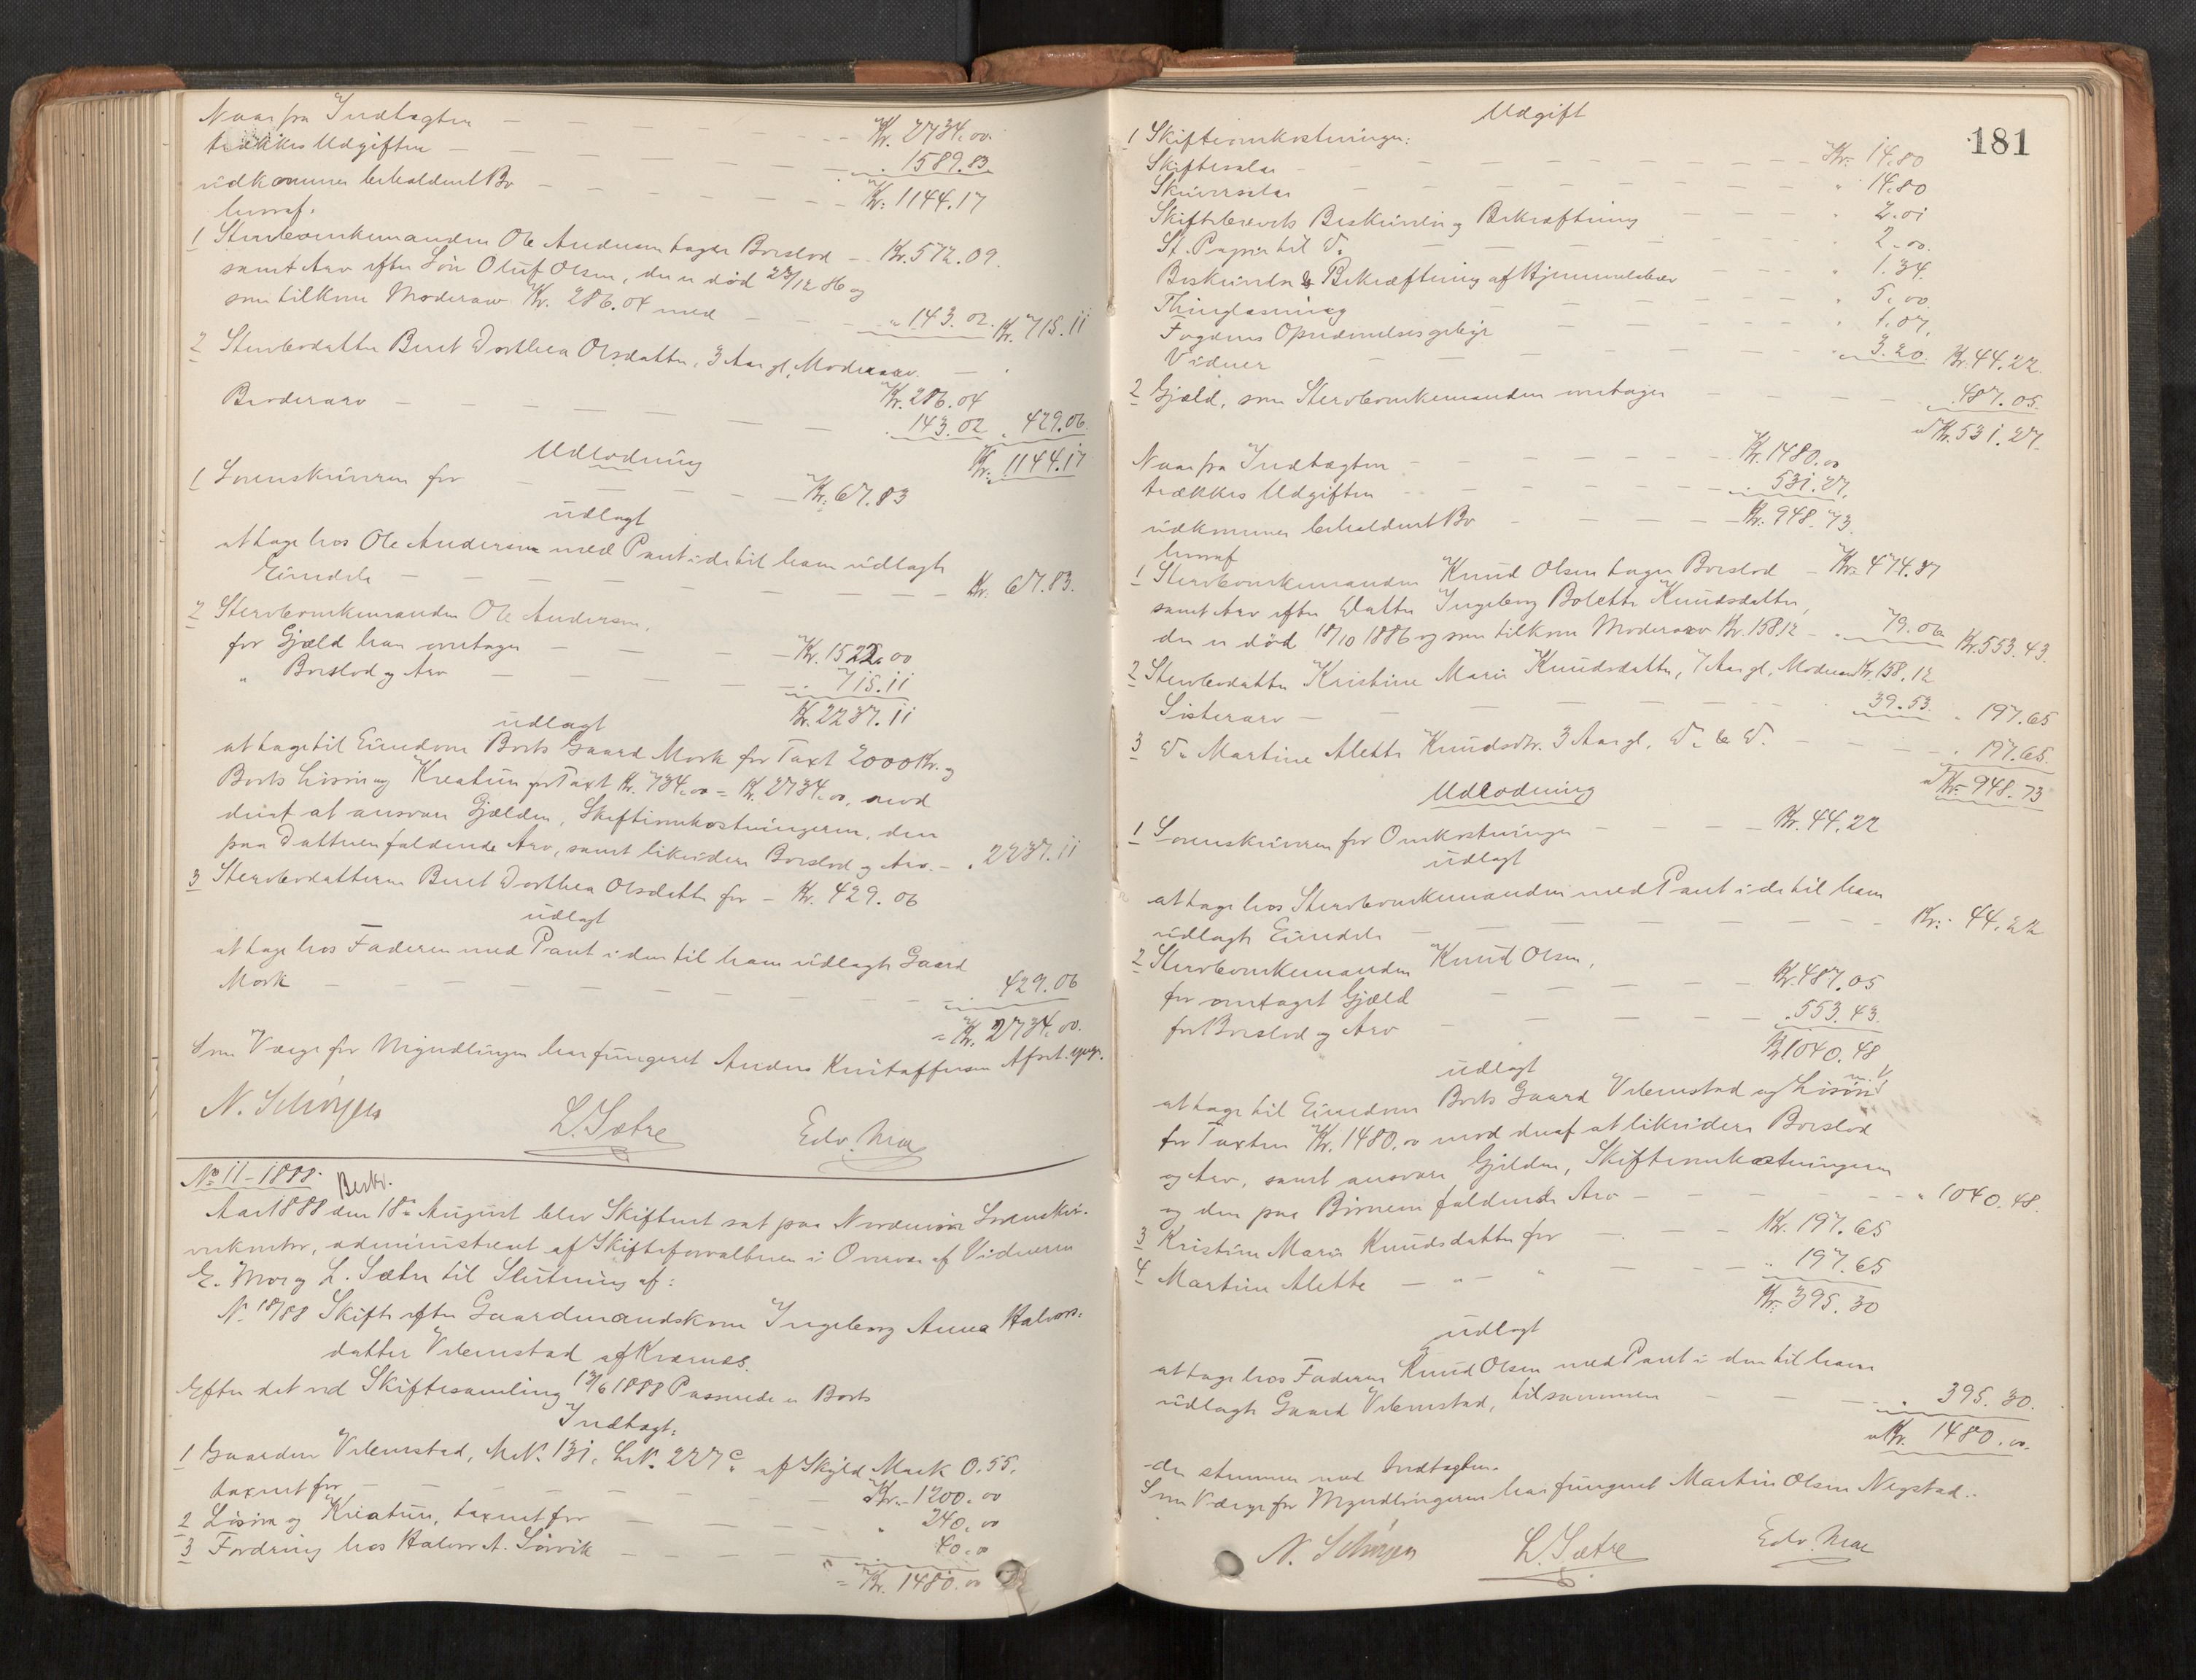 Naar fra Indtægten — Kr. 2734.00.
trækkes Udgiften — 1589.83
udkommer beholdent Bo — Kr. 1144.17
hvoraf:
1 Stervboenkemanden Ole Andersen tager Boeslod — Kr. 572.09.
samt Arv efter Søn Oluf Olsen, der er død 23/12 86 og
som tilkom Moderarv Kr. 286.04 med — " 143.02. Kr. 715.11
2 Stervbodatter Beret Dorthea Olsdatter, 3 Aar gl. Moderarv —
Kr. 286.04
Broderarv — 143.02 " 429.06
Kr. 1144.17
Udlodning
1 Sorenskriveren for — Kr. 67.83
udlagt
at tage hos Ole Andersen med Pant i de til ham udlagte
Eiendele — Kr. 67.83.
2 Stervboenkemanden Ole Andersen,
for Gjæld han overtager — Kr. 1522.00
" Boeslod og Arv — 715.11
Kr. 2237.11
udlagt
at tage til Eiendom Boets Gaard Mork for Taxt 2000 Kr. og
Boets Løsøre og Kreature for Taxt Kr. 734.00 = Kr. 2734.00, mod
deraf at ansvare Gjælden, Skifteomkostningerne, den
paa Datteren faldende Arv, samt likvidere Boeslod og Arv. — " 2237.11
3 Stervbodatteren Beret Dorthea Olsdatter for — Kr. 429.06
udlagt
at tage hos Faderen med Pant i den til ham udlagte Gaard
Mork — 429.06
= Kr. 2734.00.
Som Værge for Myndlingen har fungeret Anders Kristaffersen
N. Schørgen L. Sætre Edv. Moe
No 11 - 1888. Beskr.
Aar 1888 den 18de August blev Skifteret sat paa Nordmøre Sorenskri-
verkontor, administreret af Skifteforvalteren i Overvær af Vidnerne
E. Moe og L. Sætre til Slutning af:
N. 18/88 Skifte efter Gaardmandskone Ingeborg Anna Halvors-
datter Vebenstad af Kvernes.
Efter det ved Skiftesamling 13/6 1888 Passerede er Boets
Indtægt:
1 Gaarden Vebenstad, M.N. 131, L.N. 227 c. af Skyld Mark 0.55.
taxeret for — Kr. 1200.00
2 Løsøre og Kreature, taxeret for — " 240.00
3 Fordring hos Halvor A. Sørvik — 40.00
= Kr. 1480.00
181
Udgift
1 Skifteomkostninger:
Skiftesalær — Kr. 14.80
Skriversalær — " 14.80
Skiftebrevets Beskrivelse og Bekræftning — " 2.01
St. Papir til do — " 2.00.
Beskrivelse & Bekræftning af Hjemmelsbrev — " 1.34.
Thinglæsning — " 5.00.
Fogdens Opnævnelsesgebyr — " 1.07.
Vidner — " 3.20. Kr. 44.22.
2 Gjæld, som Stervboenkemanden overtager — 487.05.
Kr. 531.27.
Naar fra Indtægten — Kr. 1480.00
trækkes Udgiften — 531.27.
udkommer beholdent Bo — Kr. 948.73.
hvoraf
1 Stervboenkemanden Knud Olsen tager Boeslod — Kr. 474.37
samt Arv efter Datter Ingeborg Bolette Knudsdatter,
der er død 18/10 1886 og som tilkom Moderarv Kr. 158.12 — 79.06 Kr. 553.43.
2 Stervbodatter Kristine Marie Knudsdatter, 7 Aar gl. Moderarv Kr. 158.12
Søsterarv — 39.53. " 197.65
3 do Martine Alette Knudsdtr. 3 Aar gl. do & do. — " 197.65.
Kr. 948.73
Udlodning
1 Sorenskriveren for Omkostninger — Kr. 44.22
udlagt
at tage hos Stervboenkemanden med Pant i de til ham
udlagte Eiendele — Kr. 44.22
2 Stervboenkemanden Knud Olsen,
for overtaget Gjæld — Kr. 487.05
for Boeslod og Arv — " 553.43.
Kr. 1040.48
udlagt
at tage til Eiendom Boets Gaard Vebenstad og Løsøre
for Taxten Kr. 1480.00 mod deraf at likvidere Boeslod
og Arv, samt ansvare Gjelden, Skifteomkostningerne
og den paa Børnene faldende Arv — " 1040.48.
3 Kristine Marie Knudsdatter for — Kr. 197.65
4 Martine Alette — " — " — " 197.65
Kr. 395.30
udlagt
at tage hos Faderen Knud Olsen med Pant i den til ham
udlagte Gaard Vebenstad, tilsammen — " 395.30.
Kr. 1480.00.
der stemmer med Indtægten.
Som Værge for Myndlingerne har fungeret Martin Olsen Negstad.
N. Schørgen L. Sætre Edv. Moe